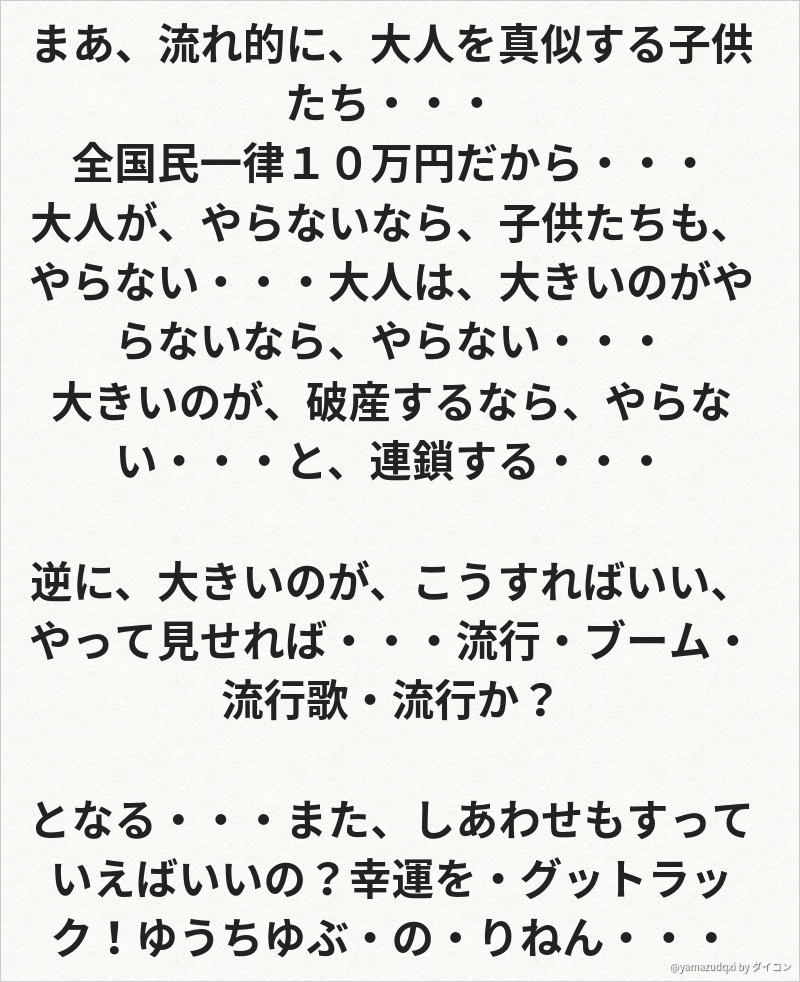 まあ、流れ的に、大人を真似する子供
たち・・・
全国民一律１０万円だから・・・
大人が、やらないなら、子供たちも、
やらない・・・大人は、大きいのがや
らないなら、やらない・・・
大きいのが、破産するなら、やらな
い・・・と、連鎖する・・・
逆に、大きいのが、こうすればいい、
やって見せれば・・・流行・ブーム・
流行歌・流行か？
となる・・・また、しあわせもすって
いえばいいの？幸運を・グットラッ
ク！ゆうちゆぶ・の・りねん・・・
@yamazudqxi by ダイコン